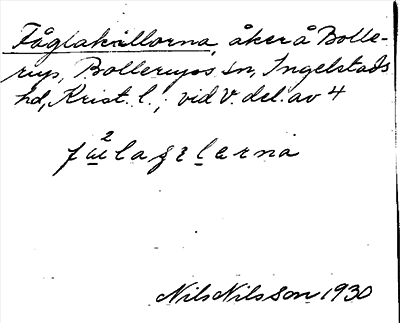 Fåglakällorna, åker å Bolle-
rup, Bollerups sn, Ingelstads
hd, Krist. l.; vid V. del. av 4
Nils Nilsson 1930